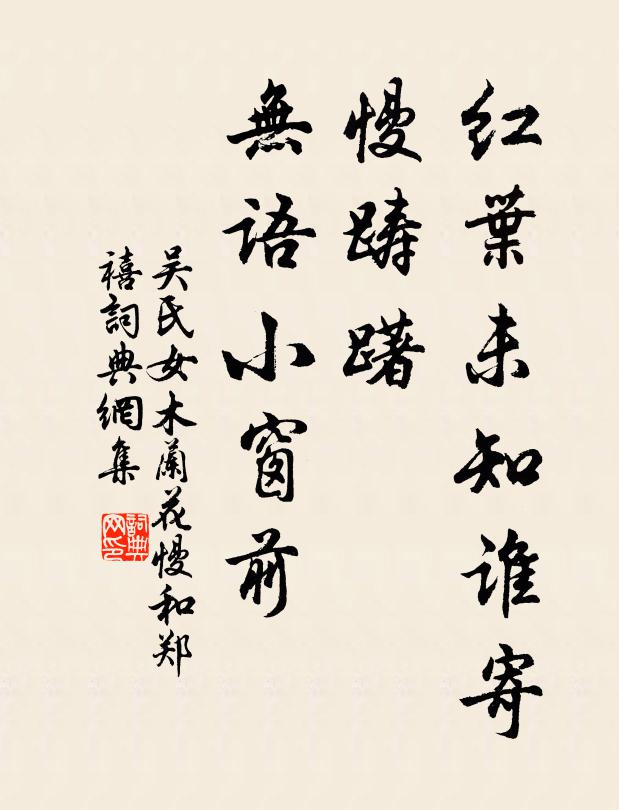 红葉未知谁寄
慢踌躇
無語小窗前
吴氏女木蘭花慢和郑
禧詞典網集
詞典
网印